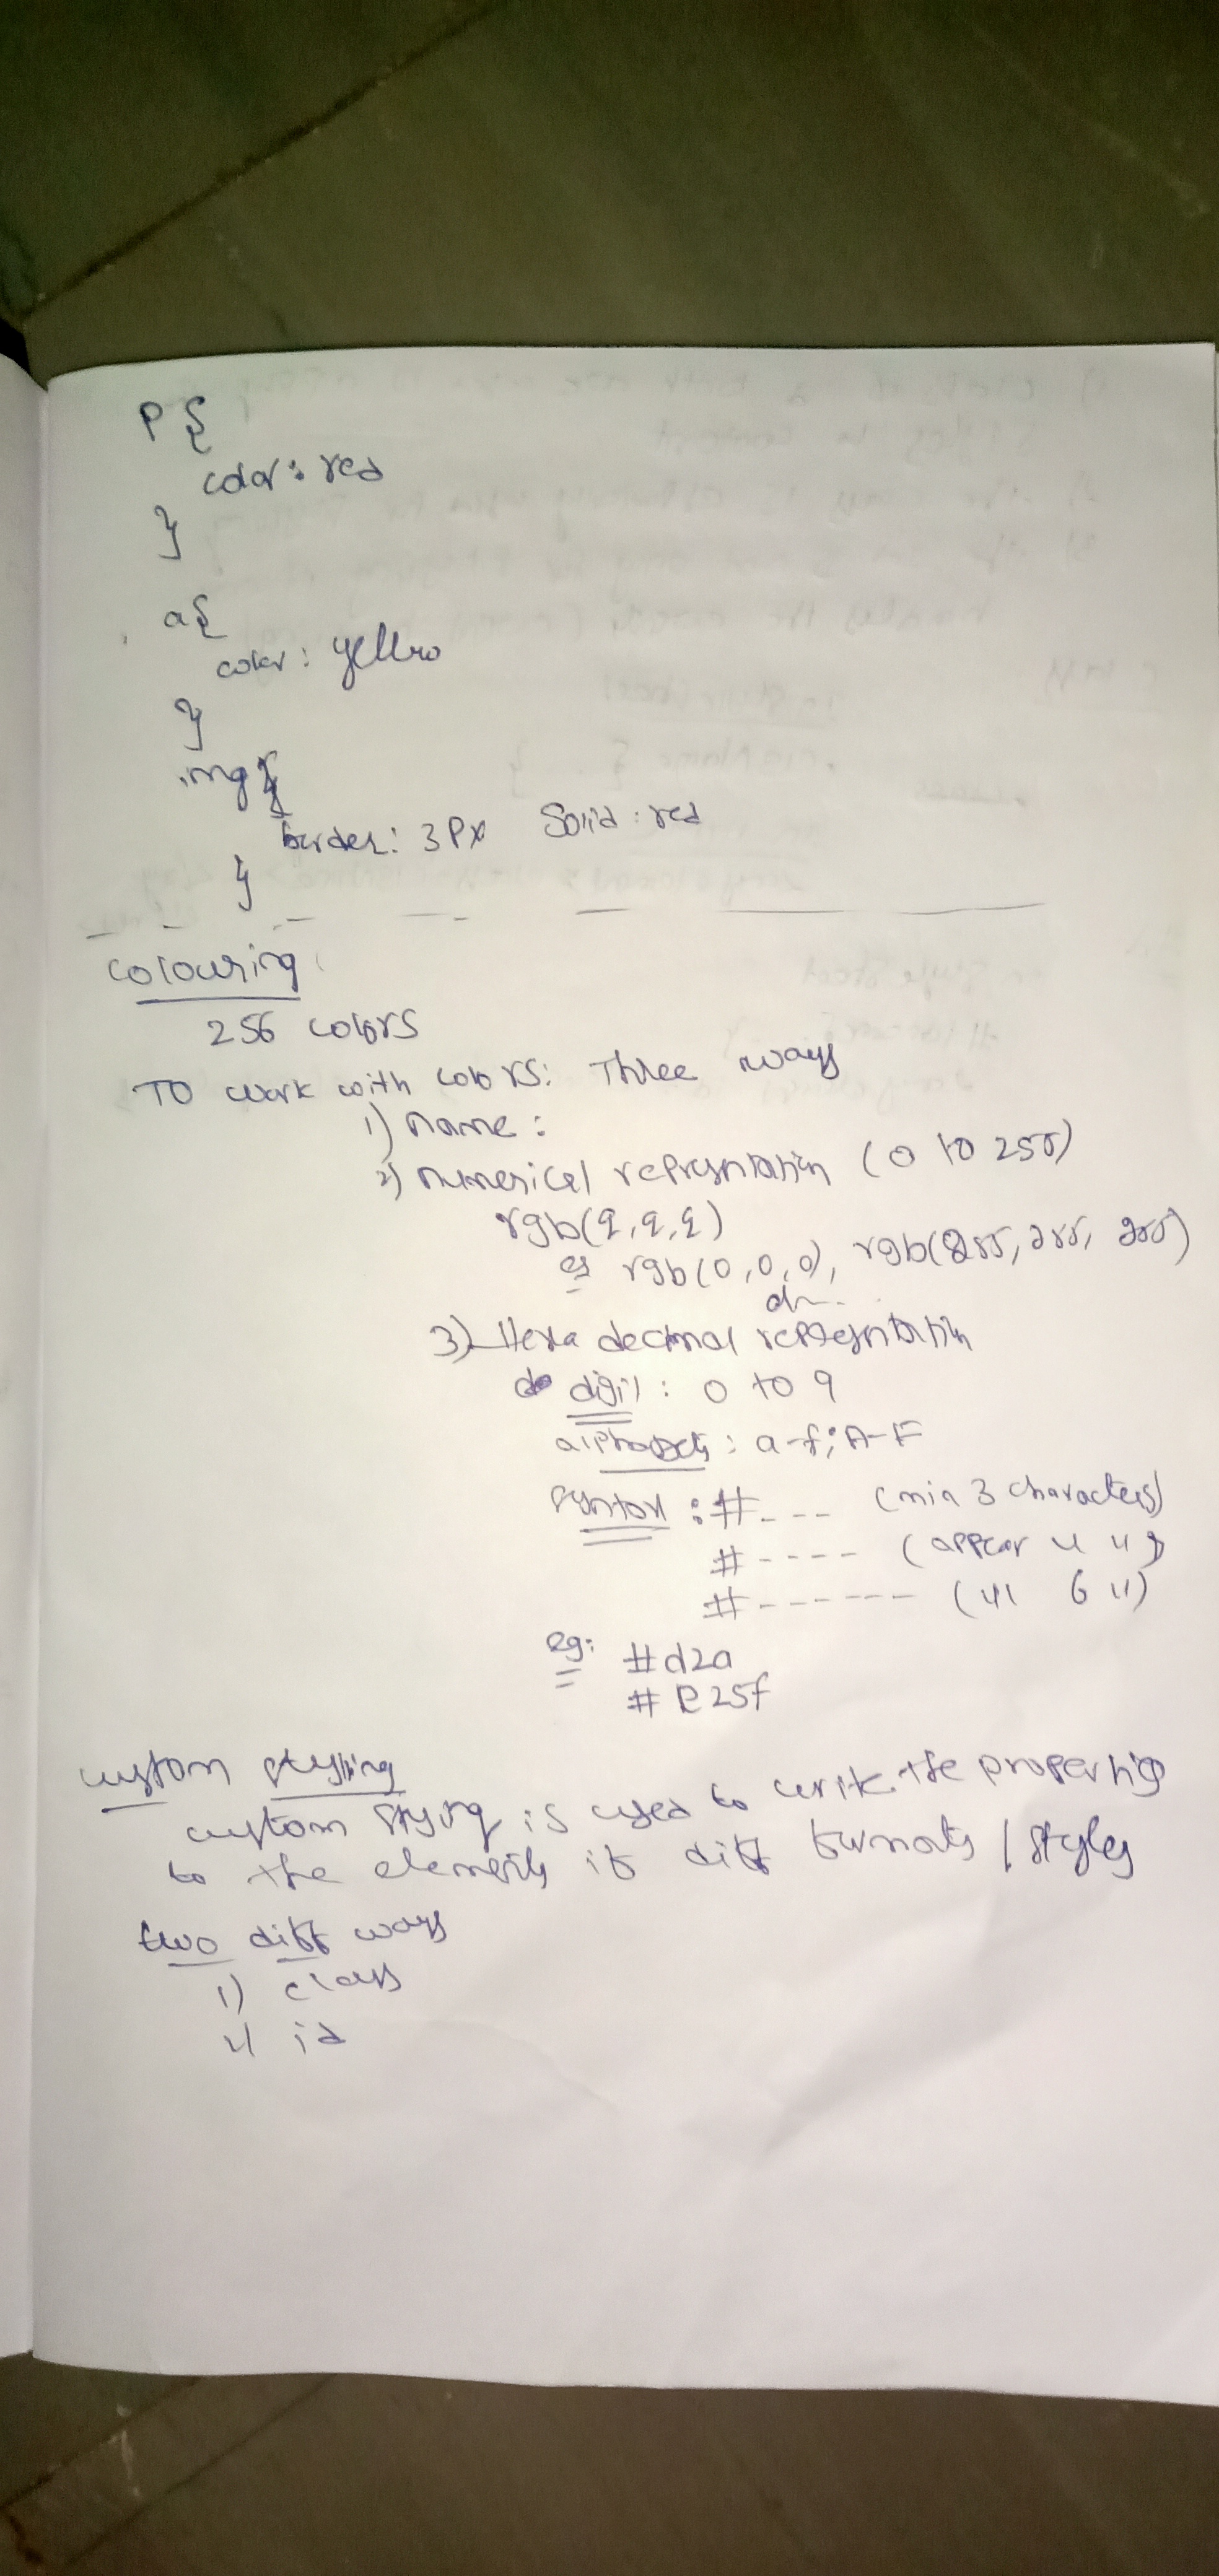 P {
color: red
}
a{
color: yellow
}
img {
border: 3px Solid: red
}
Colouring
256 colors
TO work with colors: Three ways
1) name:
2) numerical representation (0 to 255)
rgb(
eg rgb(0,0,0), rgb(255, 255, 255)
3) Hexa decimal representation
digit: 0 to 9
alphabets: a-f; A-F
syntax: #--- (min 3 characters)
#---- (appear 4 ")
#------ (" 6 ")
eg: #d2a
#E25f
custom styling
custom styling is used to write the properties
to the elements if diff formats / styles
two diff ways
1) class
2) id